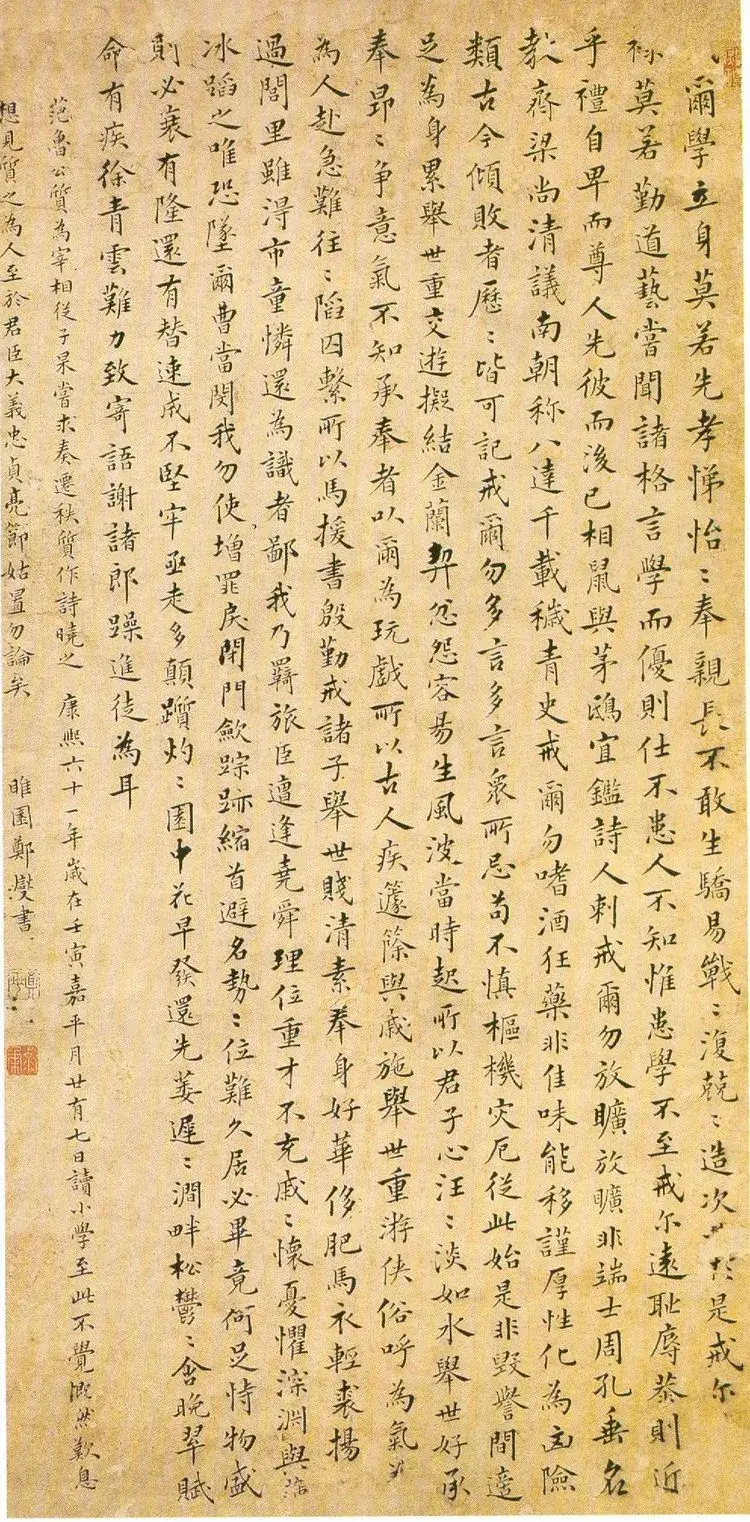 爾學立身莫若先孝悌怡〻奉親長不敢生驕易戰〻復兢〻造次於是戒尔
祿莫若勤道藝嘗聞諸格言學而優則仕不患人不知惟患學不至戒尔遠耻辱恭則近
乎禮自卑而尊人先彼而後己相鼠與茅鴟宜鑑詩人刺戒爾勿放曠放曠非端士周孔垂名
教齊梁尚清議南朝称八達千載穢青史戒爾勿嗜酒狂藥非佳味能移謹厚性化為凶險
類古今傾敗者歷〻皆可記戒爾勿多言多言衆所忌苟不慎樞機灾厄從此始是非毀譽間適
足為身累舉世重交遊擬結金蘭契忿怨容易生風波當時起所以君子心汪〻淡如水舉世好承
奉昂〻争意氣不知承奉者以爾為玩戲所以古人疾籧篨與戚施舉世重游俠俗呼為氣
為人赴急難往〻陷囚繫所以馬援書殷勤戒諸子舉世賤清素奉身好華侈肥馬衣輕裘揚
過閭里雖得市童憐還為識者鄙我乃羇旅臣遭逢堯舜理位重才不充戚〻懷憂懼深淵與
冰蹈之唯恐墜爾曹當閔我勿使增罪戾閉門歛踪跡縮首避名勢〻位難久居必畢竟何足恃物盛
則必衰有隆還有替速成不堅牢亟走多顛躓灼〻園中花早發還先萎遲〻澗畔松鬱〻含晚翠賦
命有疾徐青雲難力致寄語謝諸郎躁進徒為耳
范魯公質為宰相從子杲嘗求奏遷秩質作詩曉之 康熙六十一年歲在壬寅嘉平月廿有七日讀小學至此不覺慨然歎息
想見質之為人至於君臣大義忠貞亮節姑置勿論矣 睢園鄭燮書